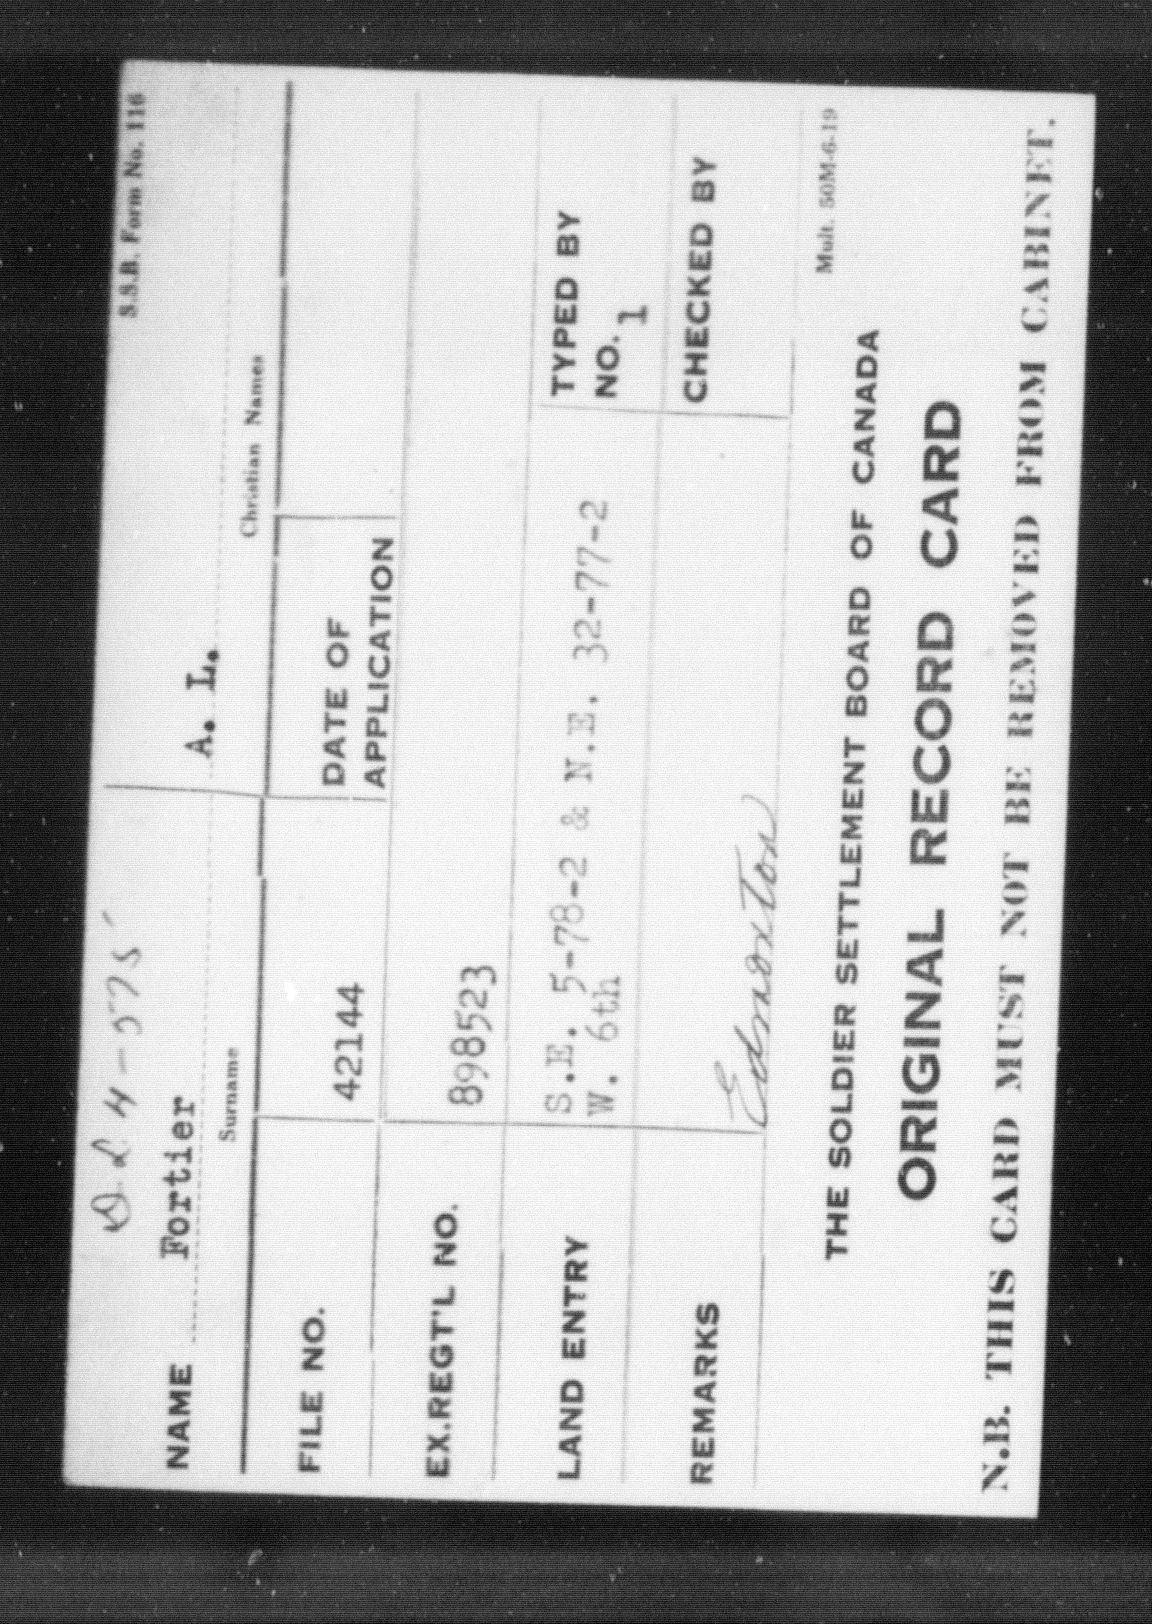 S.S.B. Form No. 116
D. L 4-575
NAME Fortier A. L.
Surname Christian Names
FILE NO. 42144 DATE OF
APPLICATION
EX.REGT'L NO. 898523
LAND ENTRY S.E. 5-78-2 & N.E. 32-77-2 TYPED BY
W. 6th NO. 1
REMARKS Edmonton CHECKED BY
Mult. 50M-6-19
THE SOLDIER SETTLEMENT BOARD OF CANADA
ORIGINAL RECORD CARD
N.B. THIS CARD MUST NOT BE REMOVED FROM CABINET.